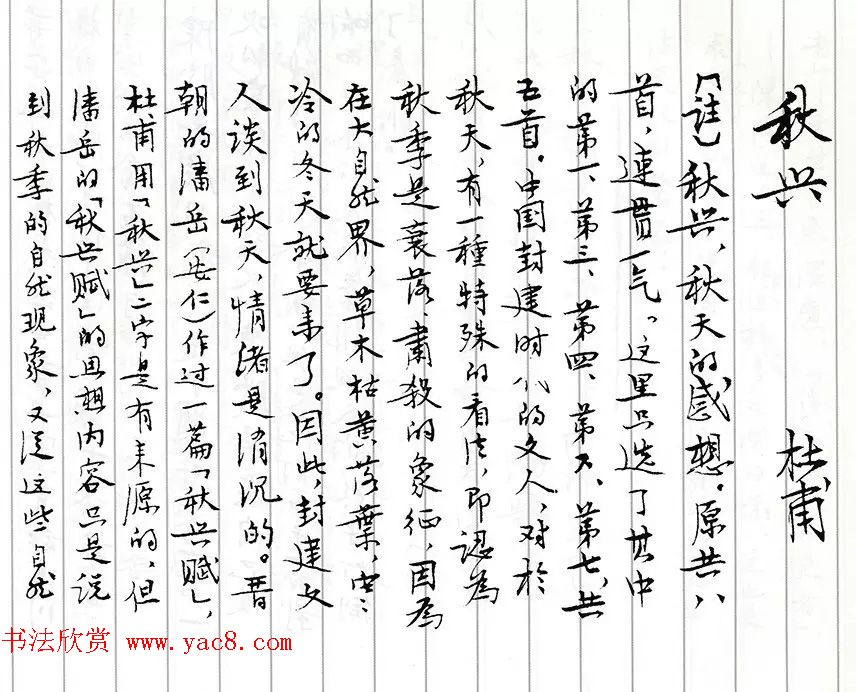 秋兴　杜甫
【註】秋兴，秋天的感想。原共八
首，連貫一气。这里只选了其中
的第一、第三、第四、第五、第七，共
五首。中国封建时代的文人，对於
秋天，有一種特殊的看法，即認為
秋季是衰落、肅殺的象征，因為
在大自然界，草木枯黄落葉，
冷的冬天就要来了。因此，封建文
人谈到秋天，情绪是消沉的。晋
朝的潘岳（安仁）作过一篇「秋兴赋」，
杜甫用「秋兴」二字是有来源的，但
潘岳的「秋兴赋」的思想内容只是说
到秋季的自然现象，又從这些自然
书法欣赏 www.yac8.com